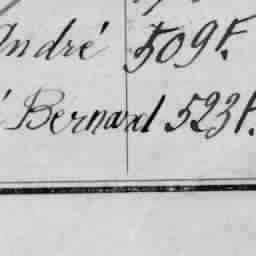 André 509F.
Bernard 523F.